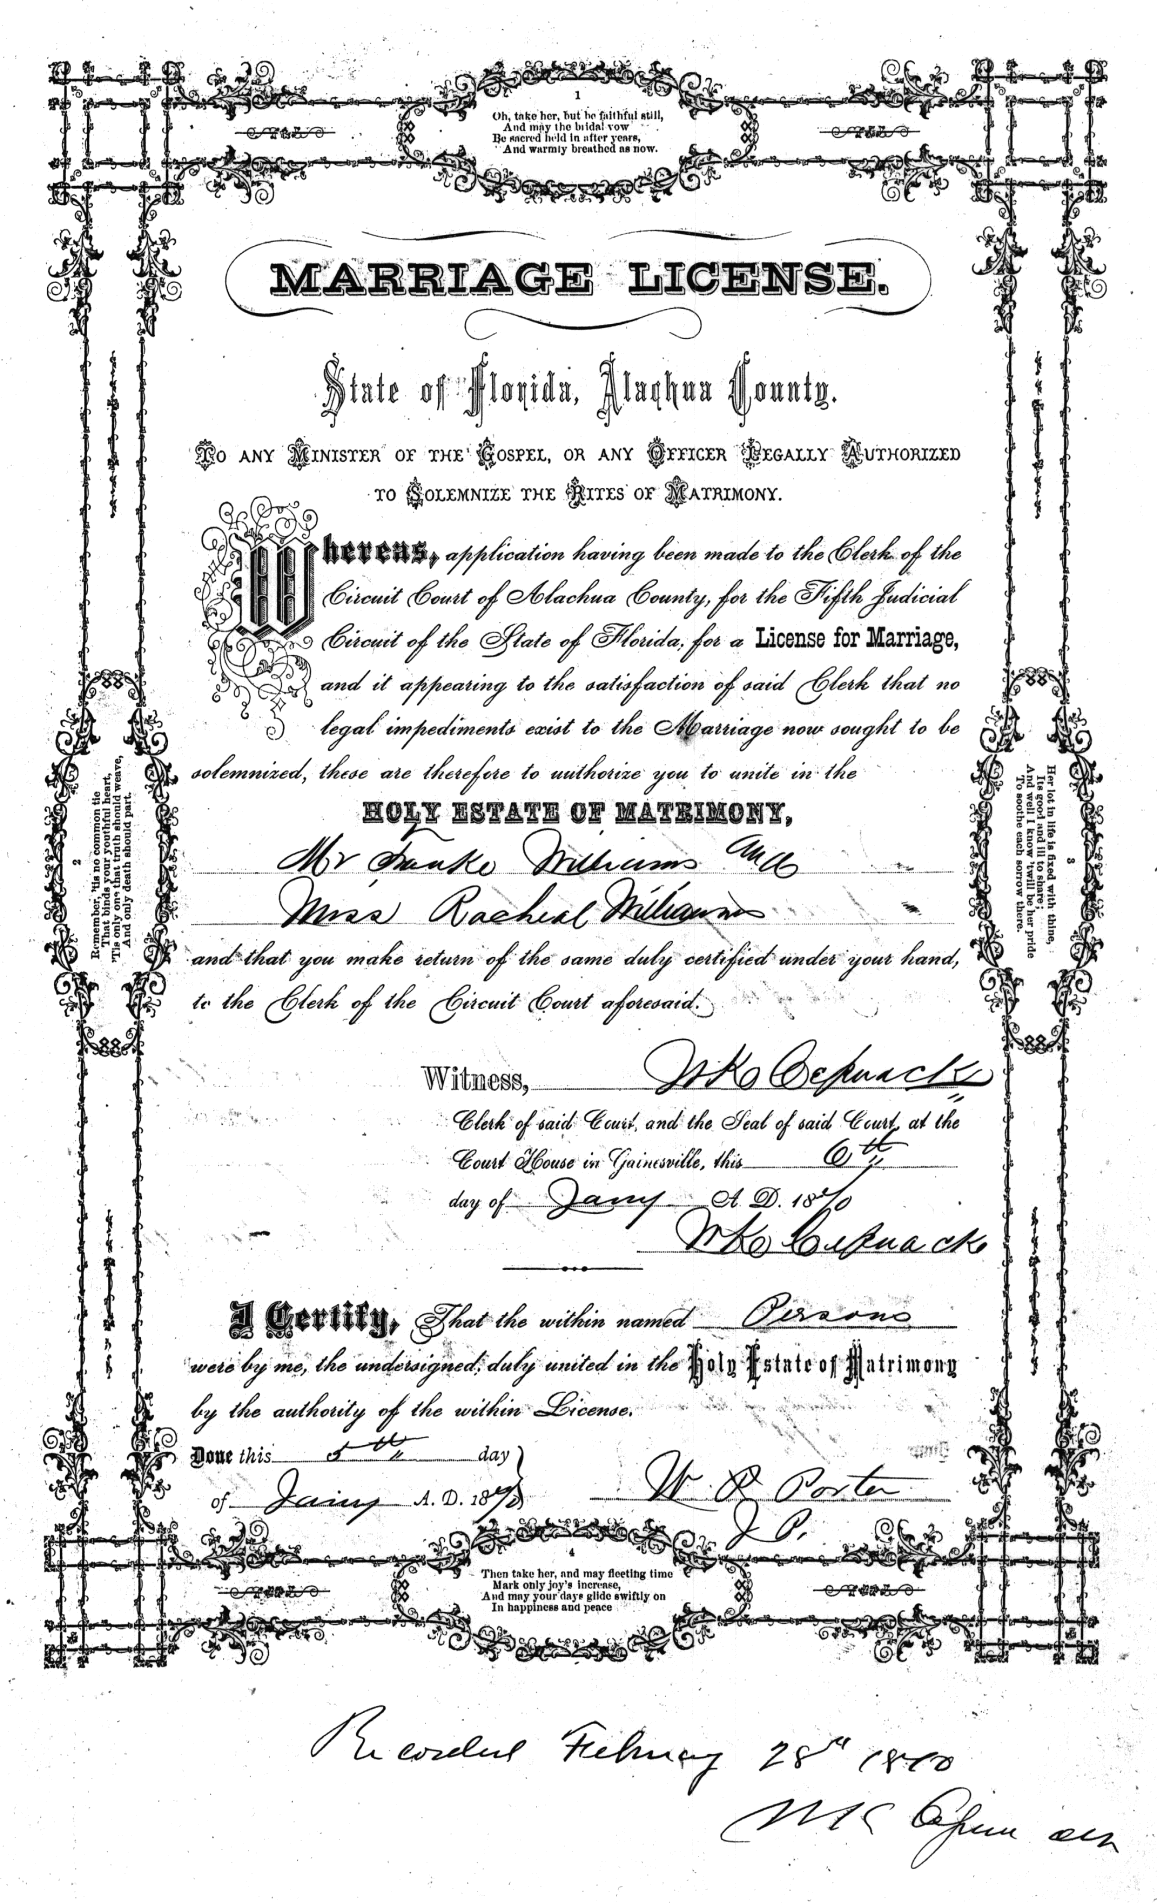 1
Oh, take her, but be faithful still,
And may the bridal vow
Be sacred held in after years,
And warmly breathed as now.
MARRIAGE LICENSE.
State of Florida, Alachua County.
To any Minister of the Gospel, or any Officer Legally Authorized
to Solemnize the Rites of Matrimony.
Whereas, application having been made to the Clerk of the
Circuit Court of Alachua County, for the Fifth Judicial
Circuit of the State of Florida, for a License for Marriage,
and it appearing to the satisfaction of said Clerk that no
legal impediments exist to the Marriage now sought to be
solemnized, these are therefore to authorize you to unite in the
HOLY ESTATE OF MATRIMONY,
Mr Williams and
Miss Racheal Williams
and that you make return of the same duly certified under your hand,
to the Clerk of the Circuit Court aforesaid.
Witness,
Clerk of said Court, and the Seal of said Court, at the
Court House in Gainesville, this 6th
day of Jany A. D. 1870
I Certify, That the within named Persons
were by me, the undersigned, duly united in the Holy Estate of Matrimony
by the authority of the within License.
Done this 5th day
of Jany A. D. 1870
W R Porter
J P.
2
Remember, 'tis no common tie
That binds your youthful heart,
'Tis only one that truth should weave,
And only death should part.
3
Her lot in life is fixed with thine,
Its good and ill to share;
And well I know 'twill be her pride
To soothe each sorrow there.
4
Then take her, and may fleeting time
Mark only joy's increase,
And may your days glide swiftly on
In happiness and peace
Recorded February 28th 1870